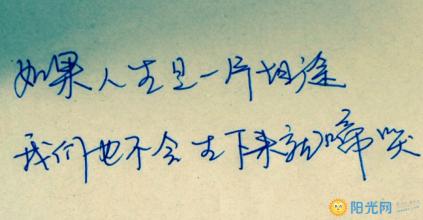 如果人生是一片坦途
我们也不会生下来就啼哭
阳光网